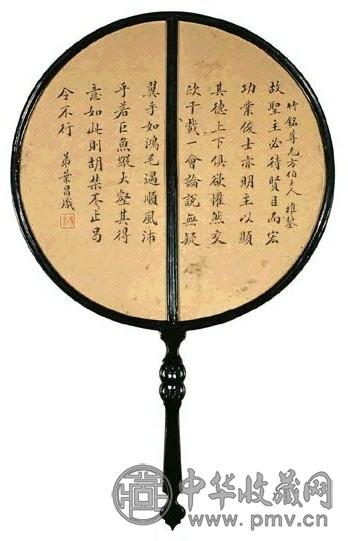 竹銘尊兄方伯大人雅鑒
故聖主必待賢臣而宏
功業俊士亦明主以顯
其德上下俱欲懽然交
欣千載一會論說無疑
翼乎如鴻毛過順風沛
乎若巨魚縱大壑其得
意如此則胡禁不止曷
令不行 弟葉昌熾
中华收藏网
www.pmv.cn